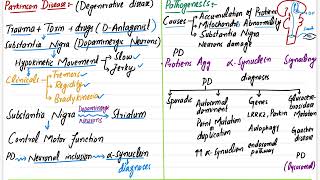 Parkinson Disease: (Degenerative disease)
Trauma + Toxin + drugs (D-Antagonist)
Substantia Nigra (Dopaminergic Neurons)
Hypokinetic Movement → Slow
→ Jerky
Clinical → Tremors
→ Rigidity
→ Bradykinesia
Substantia Nigra Dopaminergic Neurons → Striatum
Control Motor Function
PD → Neuronal inclusion → α-Synuclein
diagnosis
Pathogenesis:-
Causes → Accumulation of Protein
→ Mitochondria Abnormality
→ Substantia Nigra
Neurons damage
PD
Proteins Agg α-Synuclein Signaling
diagnosis
PD
Sporadic
Autosomal dominant
Point Mutation
duplication
↑↑ α-Synuclein
Genes
LRRK2, Parkin
Autophagy
endosomal pathway
Glucocerebrosidase
Mutation
Gaucher disease
PD
(Lysosomal)